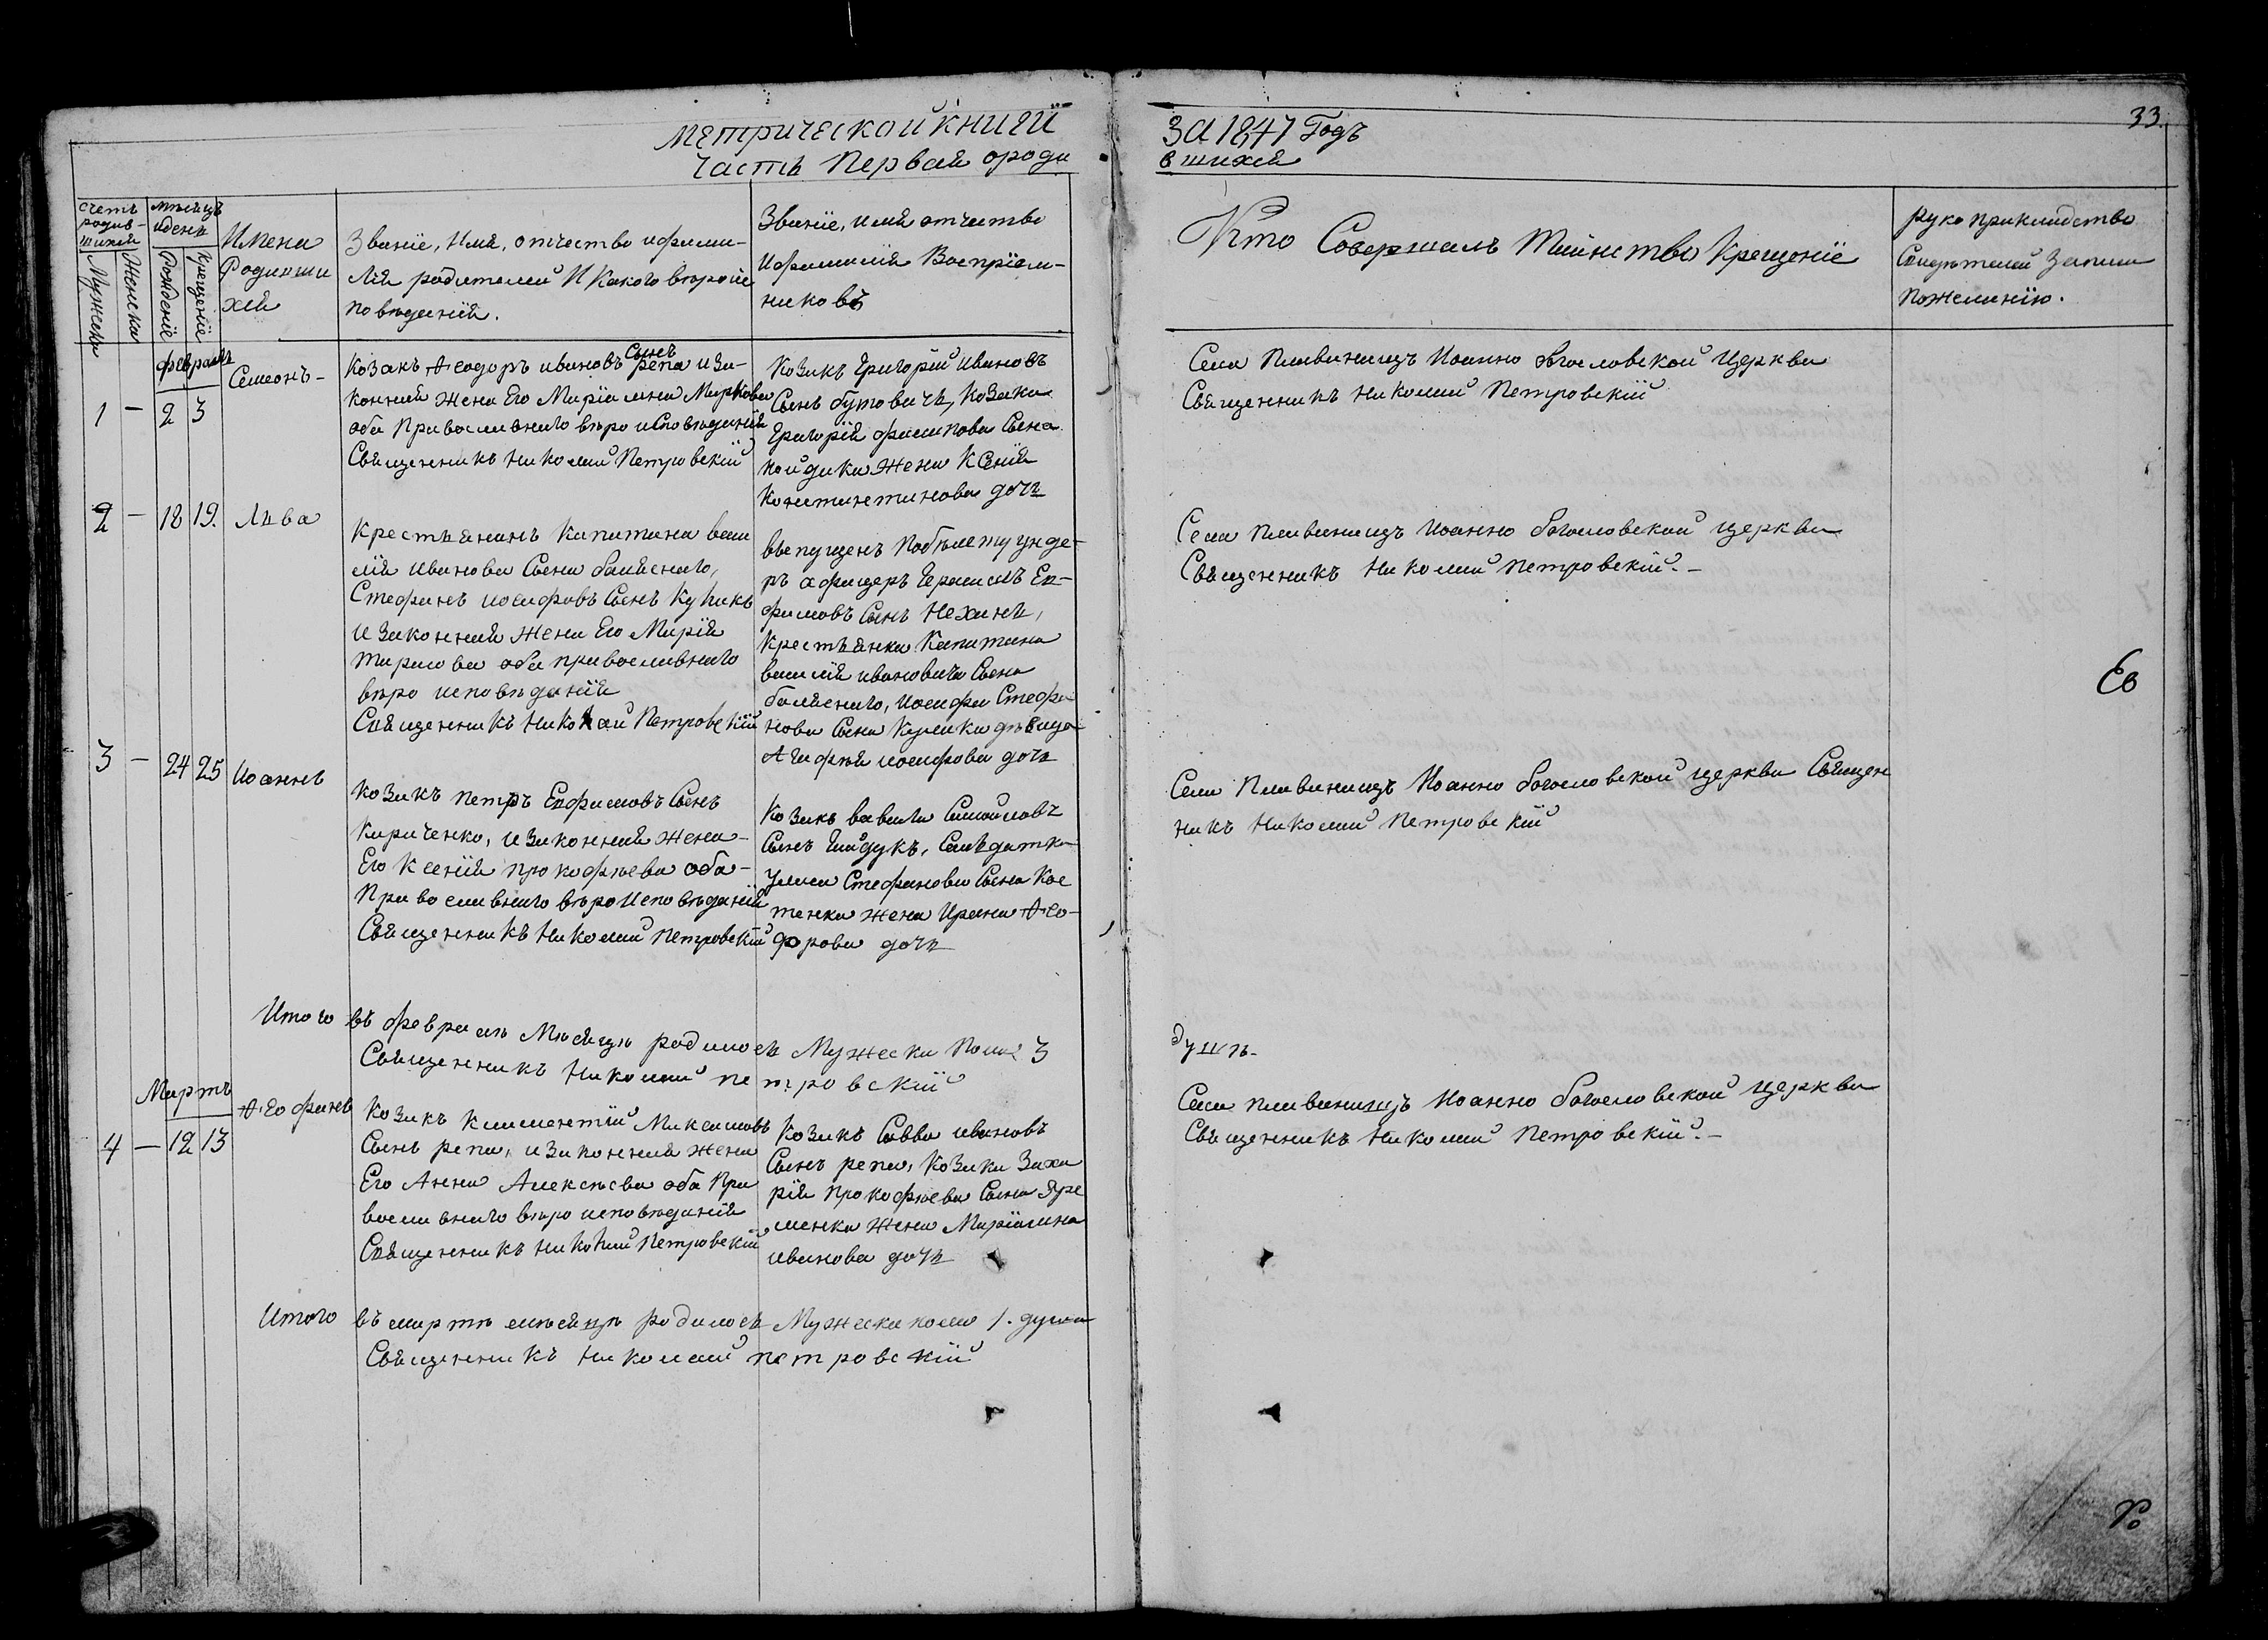 33.
Метрической книги
Часть Первая ороди
За 1847 Годъ
вшихся
Счетъ родив-
шихся
Мужеска
Женска
мѣсяцъ
и день
Рожденіе
Крещеніе
Имена
Родивши
хся
Званіе, Имя, отчество ифами-
лія родителей И Какого вѣроис
повѣданія.
Званіе, имя отчество
Ифамилія Воспріем-
никовъ
Кто Совершалъ Таинство Крещеніе
Рукоприкладство
Свидѣтелей Записи
пожеланію.
февраль
1 – 2 3
Семеонъ-
Козакъ Ѳеодоръ ивановъ Сынъ репа иза-
конная жена Его Маріамна Маркова
оба Православнаго вѣроисповѣданія
Священникъ Николай Петровскій
Козакъ Григорій Ивановъ
Сынъ бутовичъ, Козака
Григорія филипова Сына
найдика Жена Ксенія
Константинова дочь
Села Плавинищъ Иоанно богословской Церкви
Священникъ Николай Петровскій
2 – 18 19.
Лѣва
Крестьянинъ Капитана васи
лія иванова Сына балясного,
Стефанъ иосифовъ Сынъ Куликъ
изаконная жена Его Марія
тарасова оба православнаго
вѣро исповѣданія
Священникъ Николай Петровскій
выпущенъ побѣлету унде-
ръ афицеръ Герасимъ Ев-
фимовъ Сынъ Нехинъ,
Крестьянки Капитана
василія ивановича Сына
балясного, иосифа Стефа-
нова Сына Кулика дѣвица
Агифья иосифова дочь
Села Плавинищъ Иоанно богословской церкви
Священникъ Николай петровскій.–
3 – 24 25
Иоаннъ
Козакъ петръ Евфимовъ Сынъ
Кириченко, изаконная жена-
Его Ксенія прокофьева оба-
Православнаго вѣроисповѣданія
Священникъ Николай петровскій
Козакъ вавила Симоновъ
Сынъ Гайдукъ, Солѣдатка
Стефанова Сына Кос
тенка жена Ирина Ѳео-
дорова дочь
Села Плавинищъ Иоанно богословской церкви Священ
никъ Николай Петровскій
Итого въ февралѣ Мѣсяцѣ родилось Мужеска Пола 3
душъ-
Священникъ Николай петровскій
Мартъ
4 – 12 13
Ѳеофанъ
Козакъ Климентій Максимовъ
Сынъ репа, изаконная жена
Его Анна Алексѣева оба Пра
вославнаго вѣро исповѣданія
Священникъ Николай Петровскій
Козакъ Савва ивановъ
Сынъ репа, Козака Заха
рія прокофьева Сына Яре
менка Жена Маріамна
иванова дочь
Села плавинищъ Иоанно богословской церкви
Священникъ Николай Петровскій.–
Итого въ мартѣ мѣсяцѣ родилось Мужеска пола 1. душа
Священникъ Николай петровскій